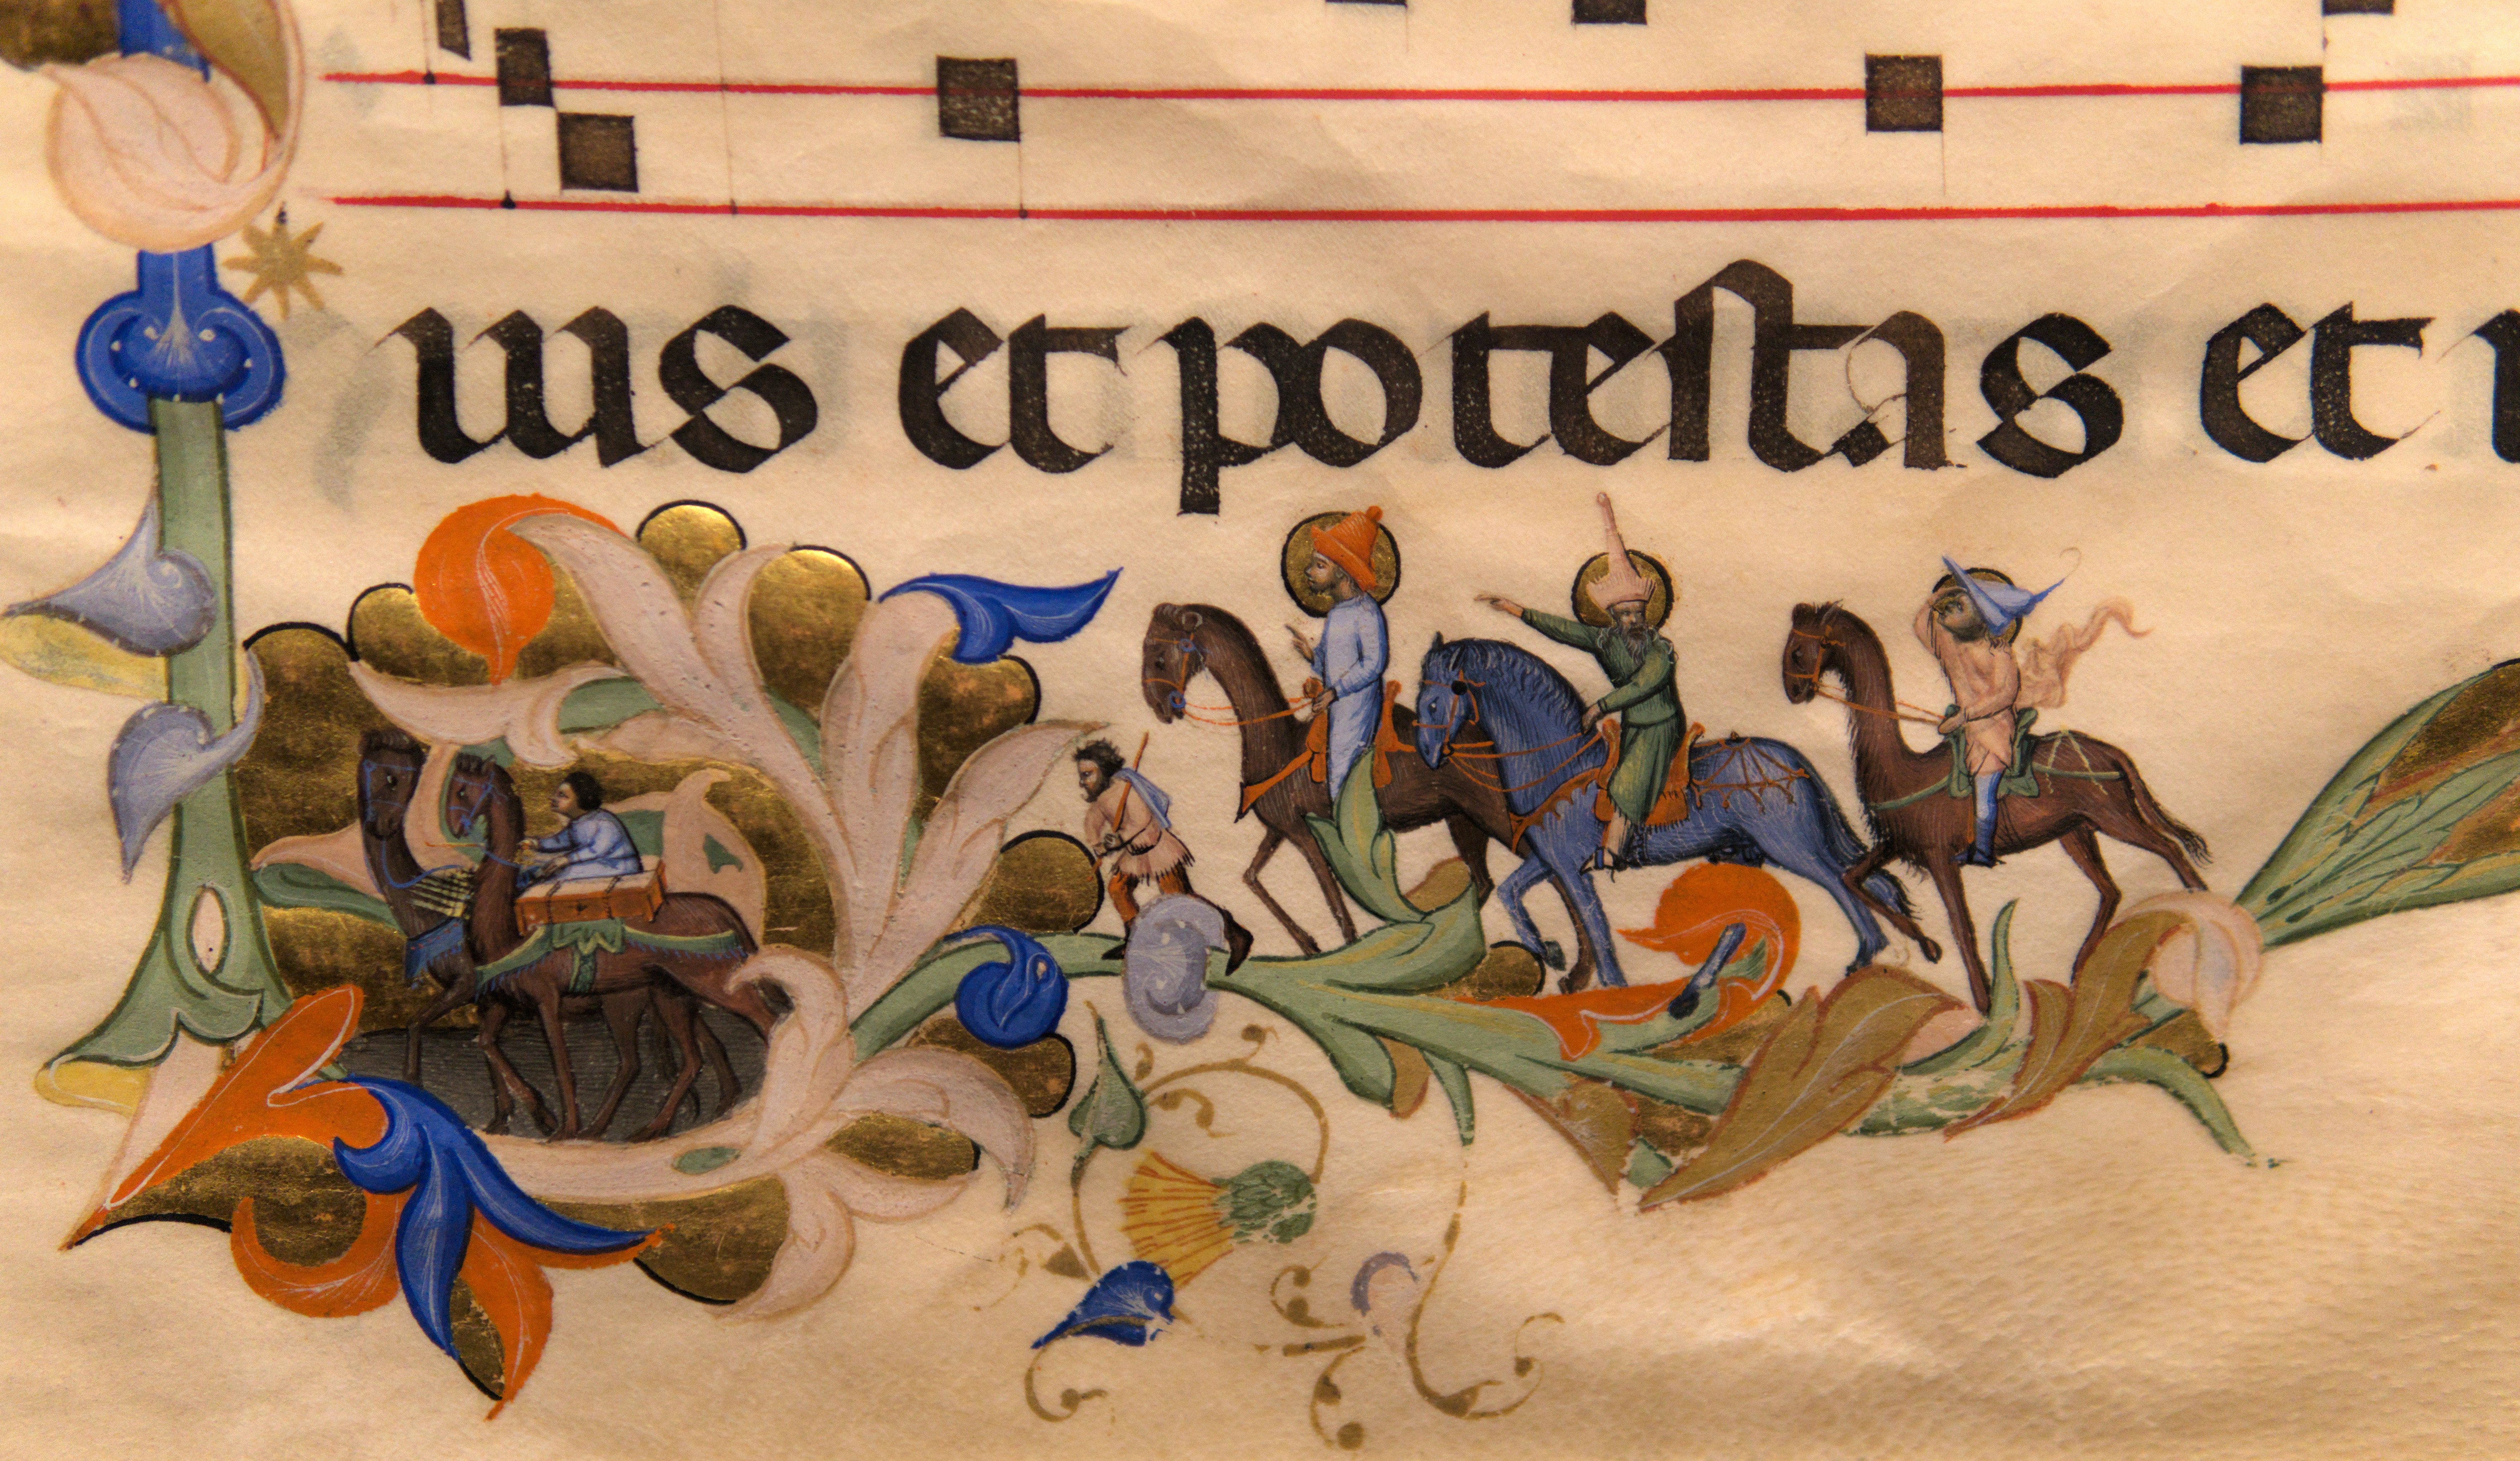 ius et potestas et